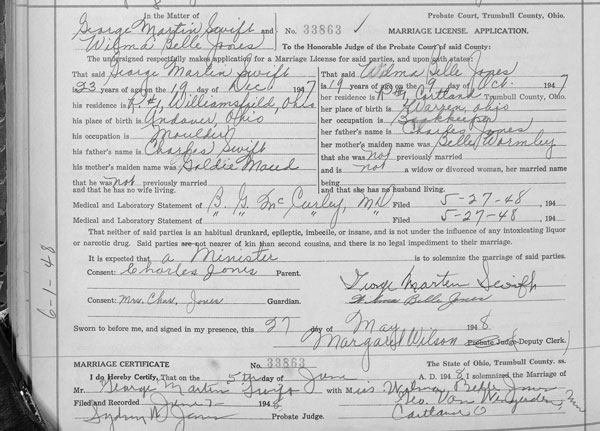 In the Matter of
George Martin Swift and
Wilma Belle Jones
No. 33863
Probate Court, Trumbull County, Ohio.
MARRIAGE LICENSE. APPLICATION.
To the Honorable Judge of the Probate Court of said County:
The undersigned respectfully makes application for a Marriage License for said parties, and upon oath states:
That said George Martin Swift
23 years of age on the 19 day of Dec 1947
his residence is R#1, Williamsfield, Ohio
his place of birth is Andover, Ohio
his occupation is Moulder
his father's name is Charles Swift
his mother's maiden name was Goldie Maud
that he was not previously married
and that he has no wife living.
That said Wilma Belle Jones
is 19 years of age on the 9 day of Oct. 1947
her residence is R#1, Cortland Trumbull County, Ohio.
her place of birth is Warren, Ohio
her occupation is Bookkeeper
her father's name is Charles Jones
her mother's maiden name was Belle Wormley
that she was not previously married
and is not a widow or divorced woman, her married name
being
and that she has no husband living.
Medical and Laboratory Statement of B. G. McCurley, MD Filed 5-27-48, 194
Medical and Laboratory Statement of " " " " Filed 5-27-48, 194
That neither of said parties is an habitual drunkard, epileptic, imbecile, or insane, and is not under the influence of any intoxicating liquor
or narcotic drug. Said parties are not nearer of kin than second cousins, and there is no legal impediment to their marriage.
It is expected that a Minister is to solemnize the marriage of said parties.
Consent: Charles Jones Parent.
George Martin Swift
Consent: Mrs. Chas. Jones Guardian.
Wilma Belle Jones
Sworn to before me, and signed in my presence, this 27 day of May 1948.
Margaret Wilson Probate Judge-Deputy Clerk.
6-1-48
MARRIAGE CERTIFICATE No. 33863 The State of Ohio, Trumbull County. ss.
I do Hereby Certify, That on the 5th day of June A. D. 1948 I solemnized the Marriage of
Mr. George Martin Swift with Miss Wilma Belle Jones
Filed and Recorded June 1948 Geo. Van Wingerden, Min
Probate Judge. Cortland O